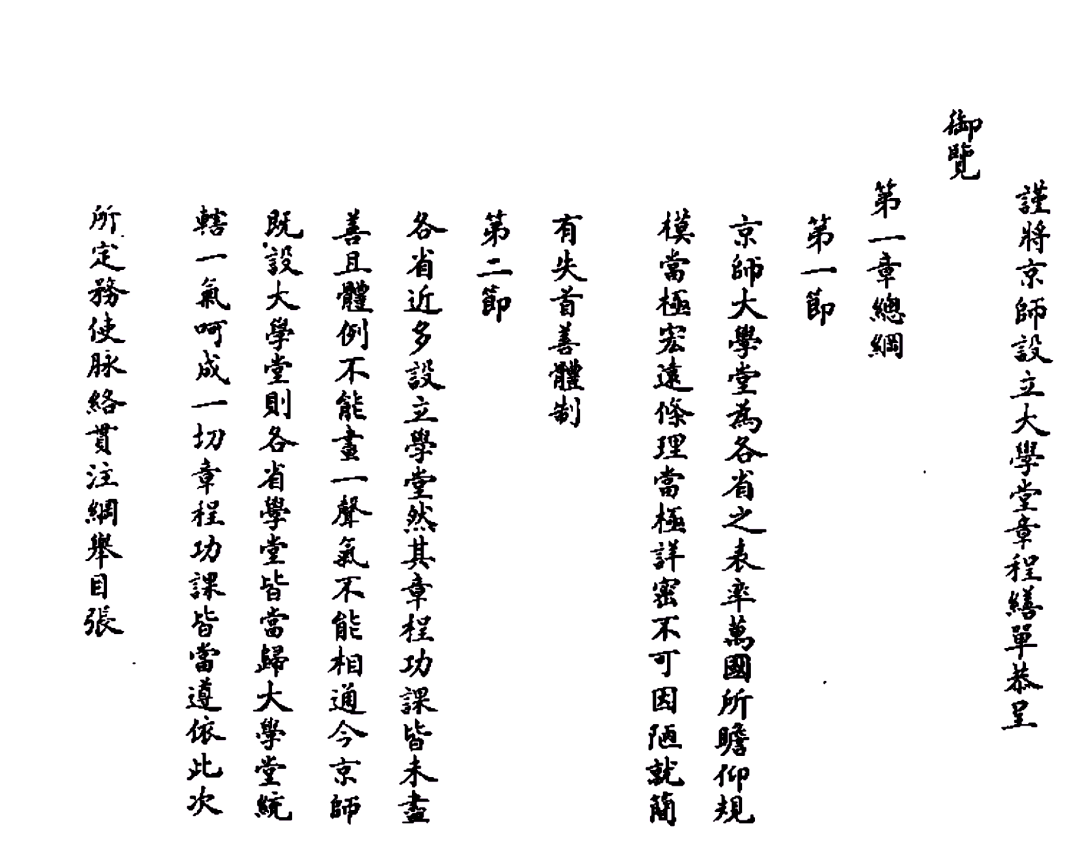 謹將京師設立大學堂章程繕單恭呈
御覽
第一章總綱
第一節
京師大學堂為各省之表率萬國所瞻仰規
模當極宏遠條理當極詳密不可因陋就簡
有失首善體制
第二節
各省近多設立學堂然其章程功課皆未盡
善且體例不能畫一聲氣不能相通今京師
既設大學堂則各省學堂皆當歸大學堂統
轄一氣呵成一切章程功課皆當遵依此次
所定務使脉絡貫注綱舉目張